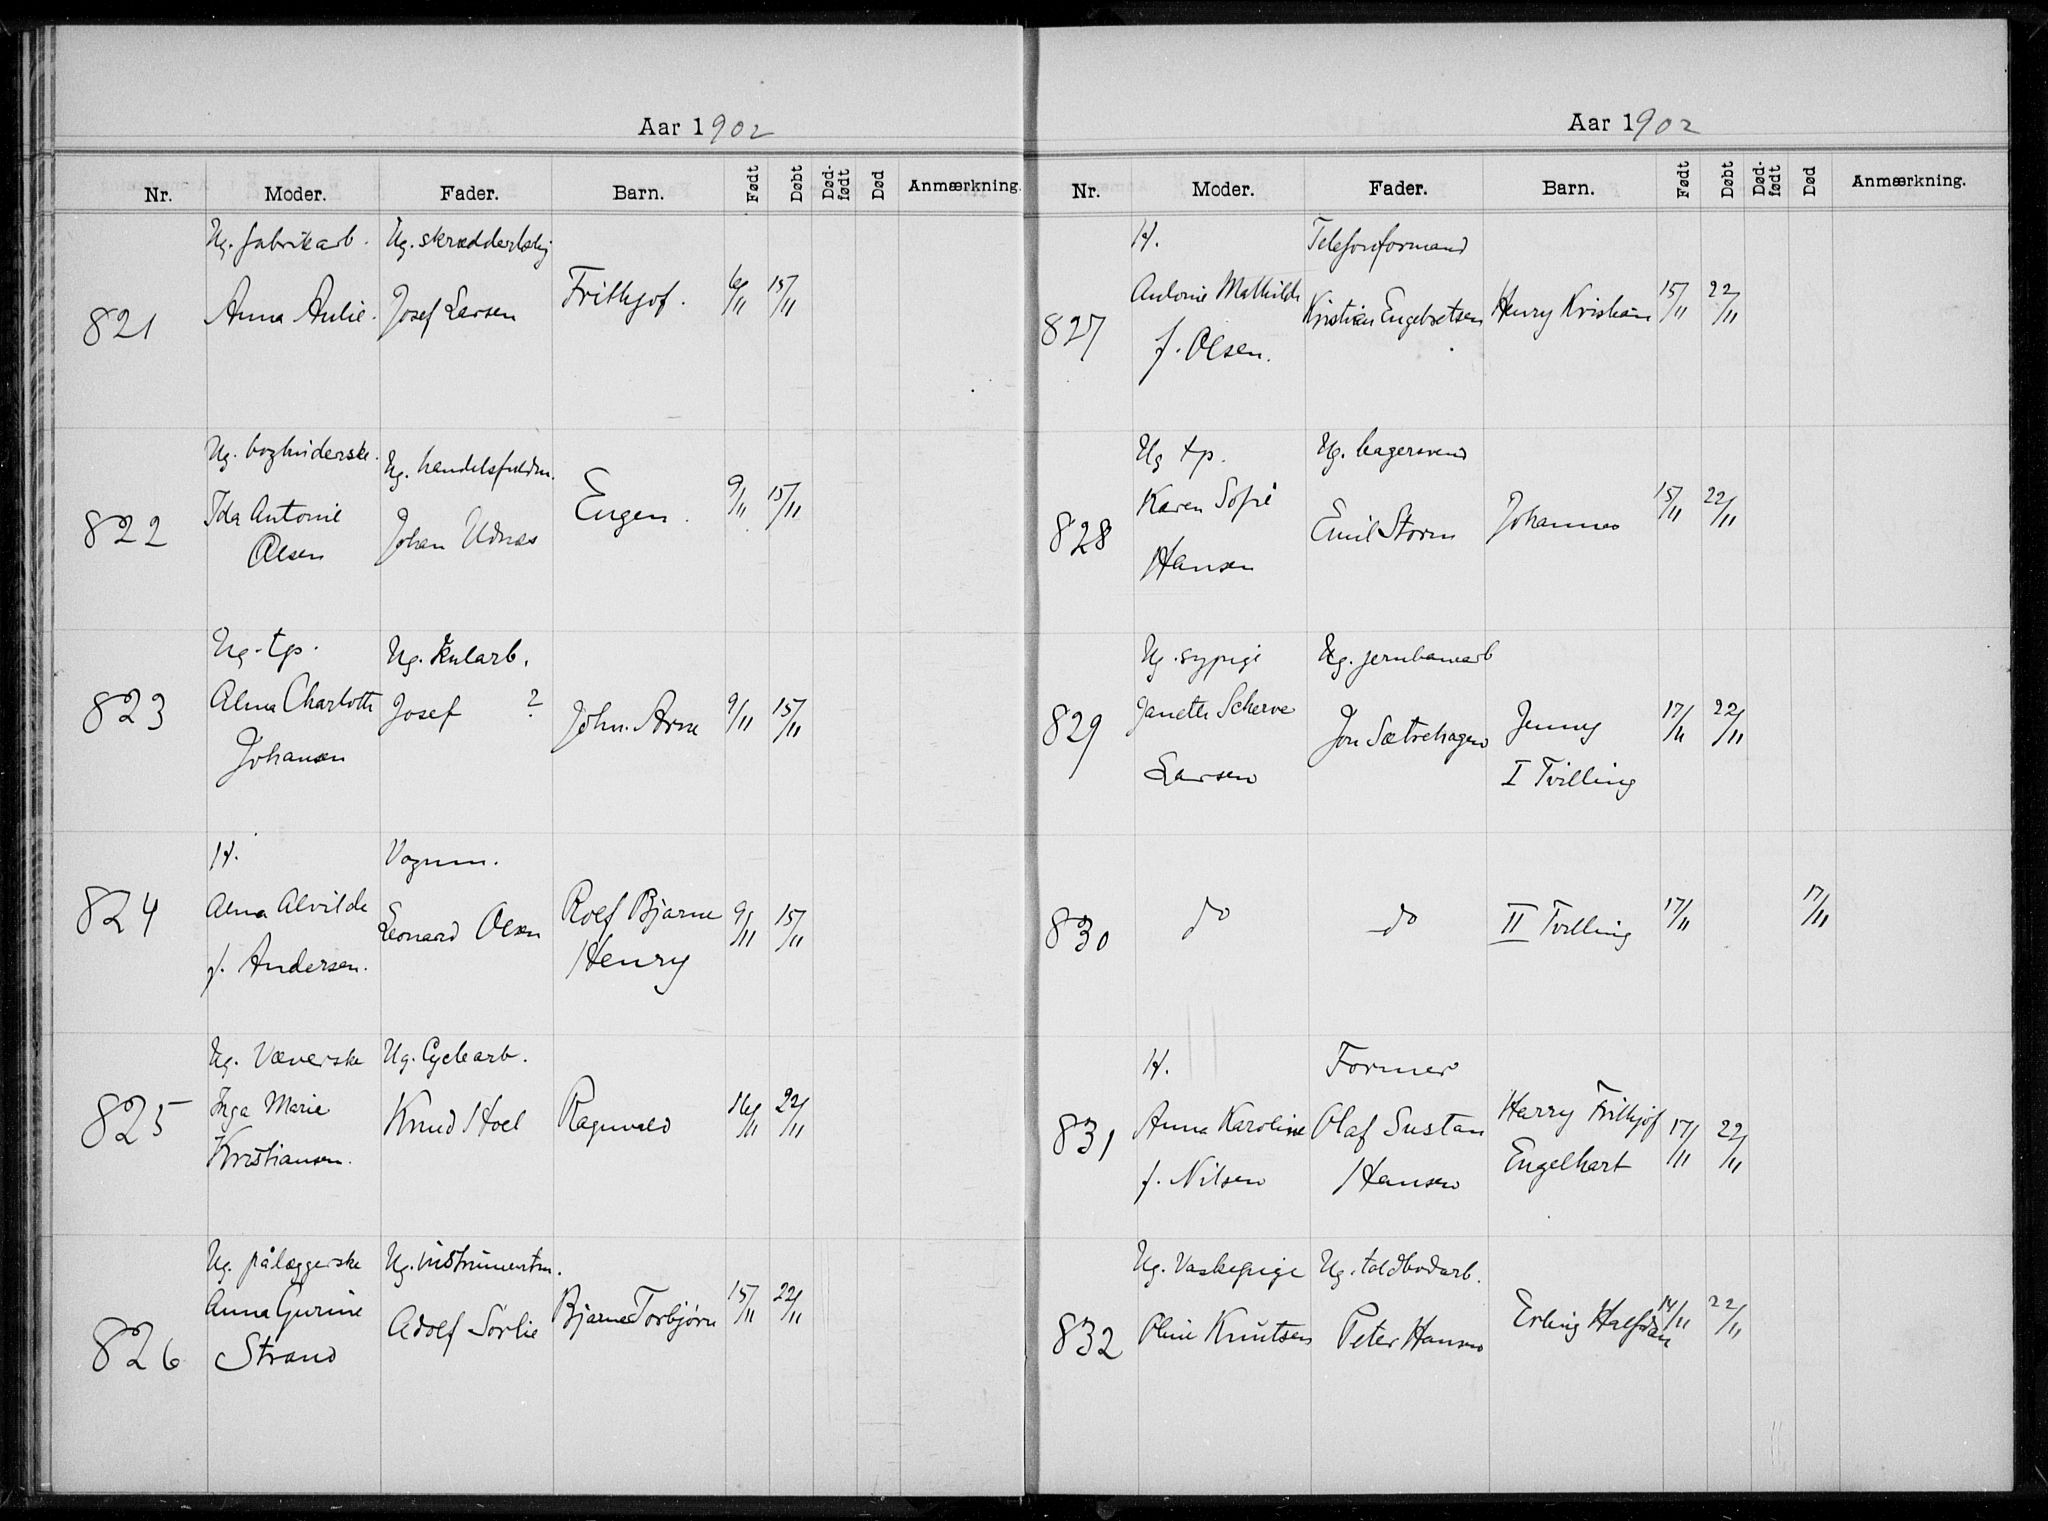 Aar 1902
Nr. Moder. Fader. Barn. Født Døbt Død-født Død Anmærkning.
Ug. fabrikarb. Ug. skrædder
821 Anna Aulie. Josef Larsen Frithjof. 6/11 15/11
Ug. bogbinderske. Ug. handelsfuldm.
822 Ida Antonie Johan Udnæs Eugen. 9/11 15/11
Olsen
Ug. tp. Ug. kularb.
823 Alma Charlotte Josef ? John. Arne 9/11 15/11
Johansen
H. Vognm.
824 Alma Alvilde Leonard Olsen Rolf Bjarne 9/11 15/11
f. Andersen. Henry
Ug. Væverske Ug. Cyclearb.
825 Inga Marie Knud Hoel Ragnvald 16/11 22/11
Kristiansen.
Ug. pålæggerske Ug. instrumentm.
826 Anna Gurine Adolf Sørlie Bjarne Torbjørn 15/11 22/11
Strand
Aar 1902
Nr. Moder. Fader. Barn. Født Døbt Død-født Død Anmærkning.
H. Telefonformand
827 Antonie Mathilde Kristian Engebretsen Henry Kristian 15/11 22/11
f. Olsen.
Ug tp. Ug. bagersvend
828 Karen Sofie Emil Storm Johannes 15/11 22/11
Hansen
Ug. sypige Ug. jernbanearb
829 Janette Scherve Jon Sætrehagen Jenny 17/11 22/11
Larsen I Tvilling
830 do do II Tvilling 17/11 17/11
H. Former
831 Anna Karoline Olaf Sustan Harry Frithjof 17/11 22/11
f. Nilsen Hansen Engelhart
Ug. Vaskepige Ug. toldbodarb.
832 Oline Knutsen Peter Hansen Erling Halfdan 14/11 22/11